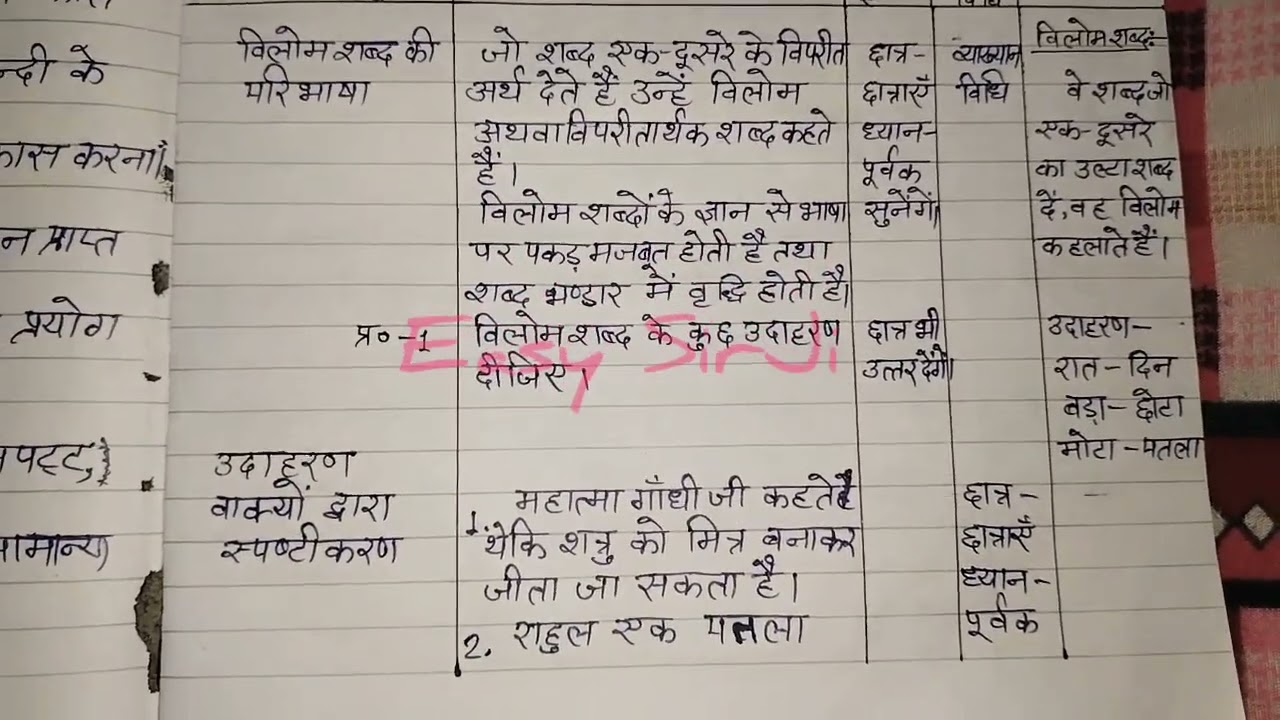 न्दी के
करना।
प्राप्त
प्रयोग
विधि
विलोम शब्द की
परिभाषा
जो शब्द एक-दूसरे के विपरीत
अर्थ देते हैं उन्हें विलोम
अथवा विपरीतार्थक शब्द कहते
हैं।
विलोम शब्दों के ज्ञान से भाषा
पर पकड़ मजबूत होती है तथा
शब्द भण्डार में वृद्धि होती है।
छात्र-
छात्राएँ
ध्यान-
पूर्वक
सुनेगें।
व्याख्यान
विधि
विलोम शब्द:-
वे शब्द जो
एक-दूसरे
का उल्टा शब्द
दें, वह विलोम
कहलाते हैं।
प्र०-1
विलोम शब्द के कुछ उदाहरण
दीजिए।
छात्र भी
उत्तर देंगे।
उदाहरण-
रात - दिन
बड़ा - छोटा
मोटा - पतला
Easy Sir Ji
उदाहरण
वाक्यों द्वारा
स्पष्टीकरण
1. महात्मा गाँधी जी कहते
थे कि शत्रु को मित्र बनाकर
जीता जा सकता है।
2. राहुल एक पतला
छात्र-
छात्राएँ
ध्यान-
पूर्वक